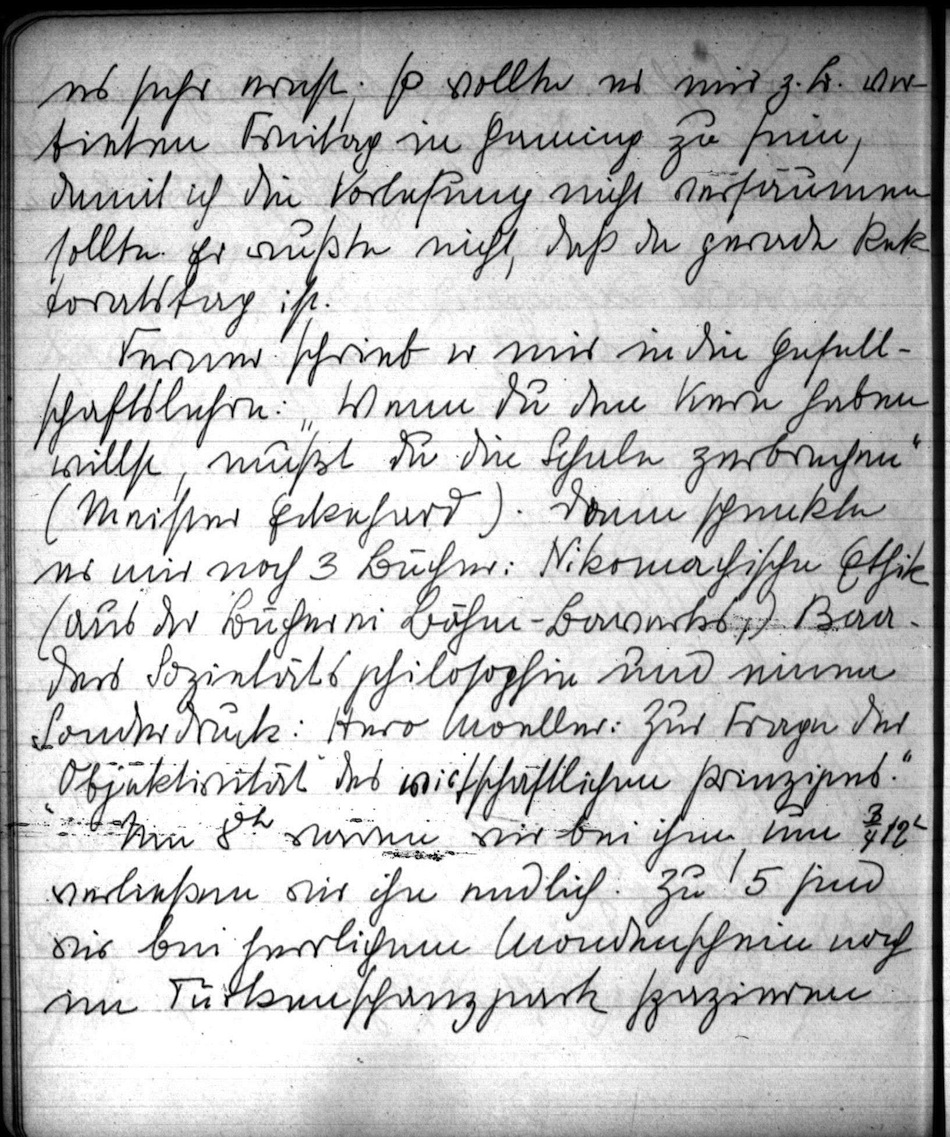 es sehr ernst; so wollte er mir z.B. ver-
bieten Freitag in Gaming zu sein,
damit ich die Vorlesung nicht versäumen
sollte. Er wußte nicht, daß da gerade Rek
toratstag ist.
Ferner schrieb er mir in die Gesell-
schaftslehre: „Wenn du den Kern haben
willst, mußt du die Schale zerbrechen“
(Meister Eckehard). Dann schenkte
er mir noch 3 Bücher: Nikomachische Ethik
(aus der Bücherei Böhm-Bawerks,) Baa-
ders Sozietätsphilosophie und einen
Sonderdruck: Hero Moeller: Zur Frage der
"Objektivität des wirtschaftlichen Prinzipes."
Um 8h waren wir bei ihm, um 3/4 12h
verließen wir ihn endlich. Zu 5 sind
wir bei herrlichem Mondenschein noch
im Türkenschanzpark spazieren